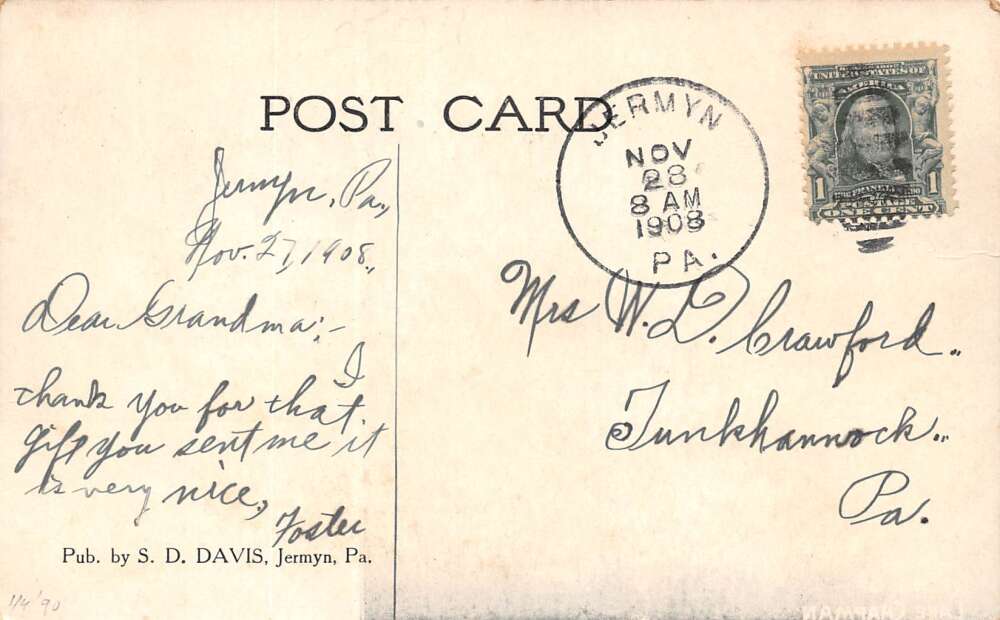 POST CARD
JERMYN
NOV
28
8 AM
1908
PA.
UNITED STATES OF
AMERICA
1 1
ONE CENT
Jermyn, Pa.,
Nov. 27, 1908.,
Dear Grandma:-
I
thank you for that
gift you sent me it
is very nice,
Foster
Pub. by S. D. DAVIS, Jermyn, Pa.
Mrs W. L. Crawford..
Tunkhannock..
Pa.
1/4 '90